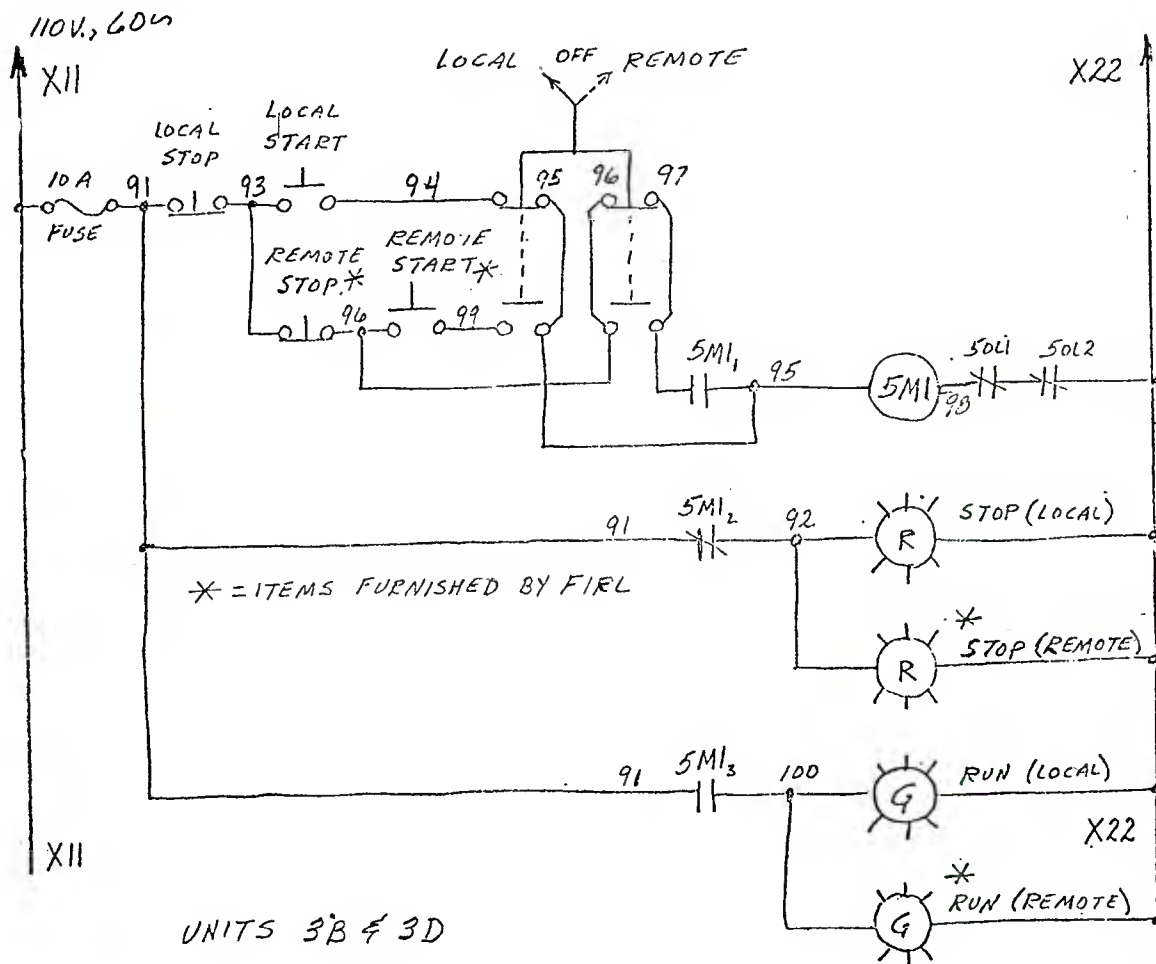 110V., 60~
X11
LOCAL OFF REMOTE
X22
LOCAL STOP
LOCAL START
10A
FUSE
91
93
94
95
96
97
REMOTE STOP *
REMOTE START *
96
99
5M1₁
95
5M1
98
5OL1
5OL2
91
5M1₂
92
R
STOP (LOCAL)
* = ITEMS FURNISHED BY FIRL
R
* STOP (REMOTE)
91
5M1₃
100
G
RUN (LOCAL)
X11
X22
G
* RUN (REMOTE)
UNITS 3B & 3D